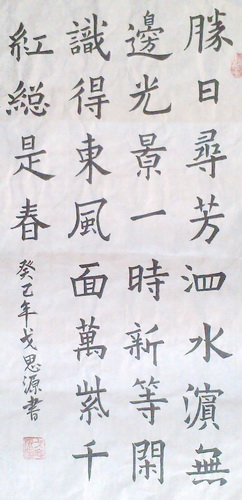 勝日尋芳泗水濵無
邊光景一時新等閑
識得東風面萬紫千
紅緫是春
癸巳年戈思源書